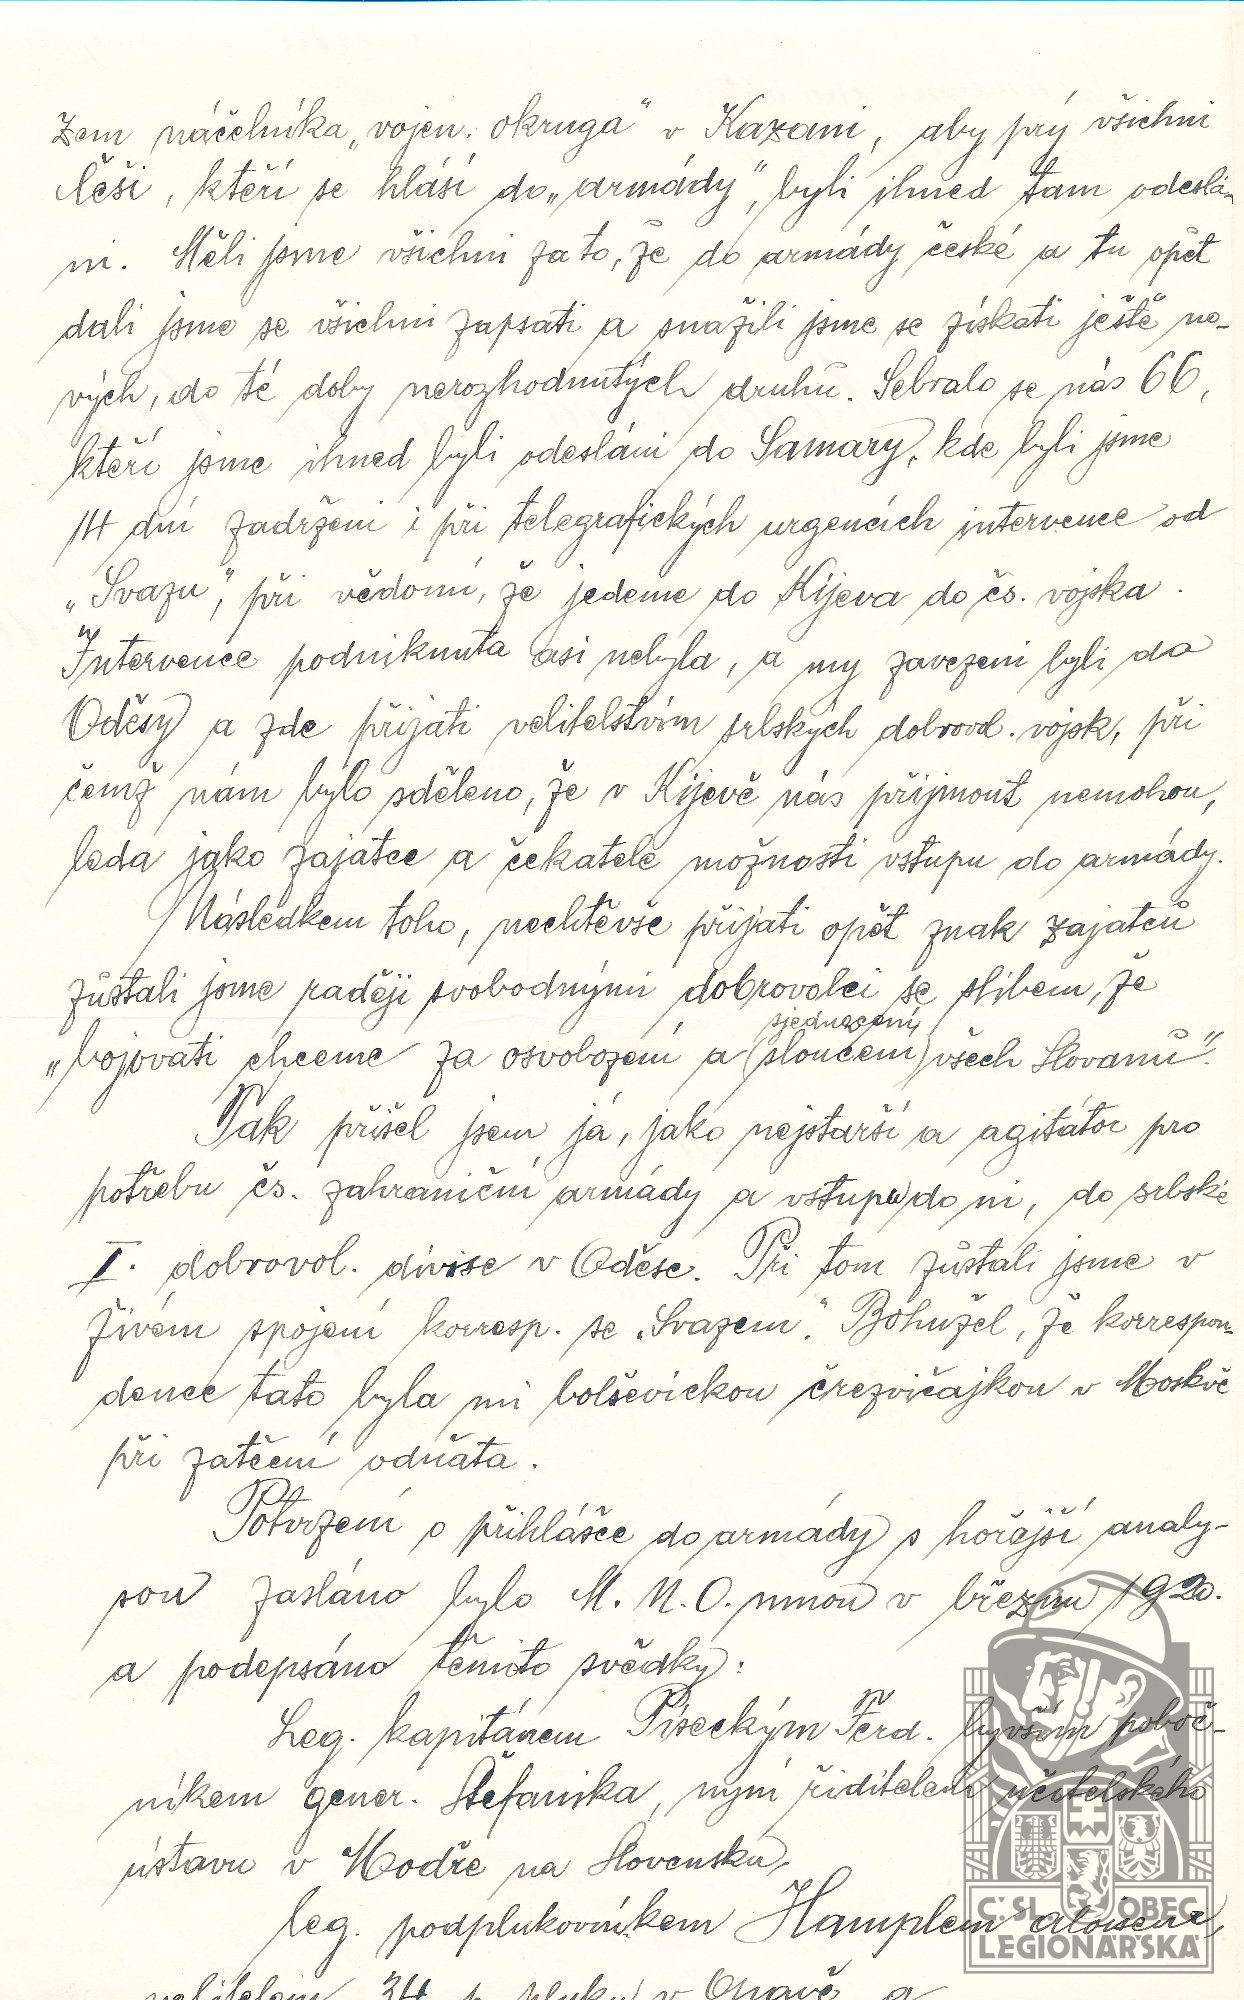 zem náčelníka „vojen. okruga" v Kazani, aby prý všichni
Češi, kteří se hlásí do „armády", byli ihned tam odeslá-
ni. Měli jsme všichni za to, že do armády české a tu opět
dali jsme se všichni zapsati a snažili jsme se získati ještě no-
vých, do té doby nerozhodnutých druhů. Sebralo se nás 66,
kteří jsme ihned byli odesláni do Samary, kde byli jsme
14 dní zadrženi i při telegrafických urgencích intervence od
„Svazu", při vědomí, že jedeme do Kijeva do čs. vojska.
Intervence podniknuta asi nebyla, a my zavezeni byli do
Oděsy a zde přijati velitelstvím srbských dobrovol. vojsk, při
čemž nám bylo sděleno, že v Kijevě nás přijmout nemohou,
leda jako zajatce a čekatele možnosti vstupu do armády.
Následkem toho, nechtěvše přijati opět znak zajatců
zůstali jsme raději svobodnými dobrovolci se slibem, že
sjednocení
„bojovati chceme za osvobození a (sloučení) všech Slovanů".
Tak přišel jsem já, jako nejstarší a agitátor pro
potřebu čs. zahraniční armády a vstupu do ní, do srbské
I. dobrovol. divise v Oděse. Při tom zůstali jsme v
živém spojení korresp. se „Svazem". Bohužel, že korrespon-
dence tato byla mi bolševickou črezvičajkou v Moskvě
při zatčení odňata.
Potvrzení o přihlášce do armády s hořejší analy-
sou zasláno bylo M. N. O. mnou v březnu 1920.
a podepsáno těmito svědky:
Leg. kapitánem Píseckým Ferd. bývším poboč-
níkem gener. Štefanika, nyní ředitelem učitelského
ústavu v Modře na Slovensku,
leg. podplukovníkem Hamplem Aloisem,
velitelem 34 p. pluku v Opavě a
Č.SL. OBEC
LEGIONÁŘSKÁ